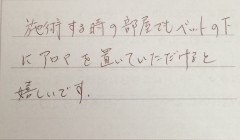 施術する時の部屋でもベットの下
にアロマを置いていただけると
嬉しいです.